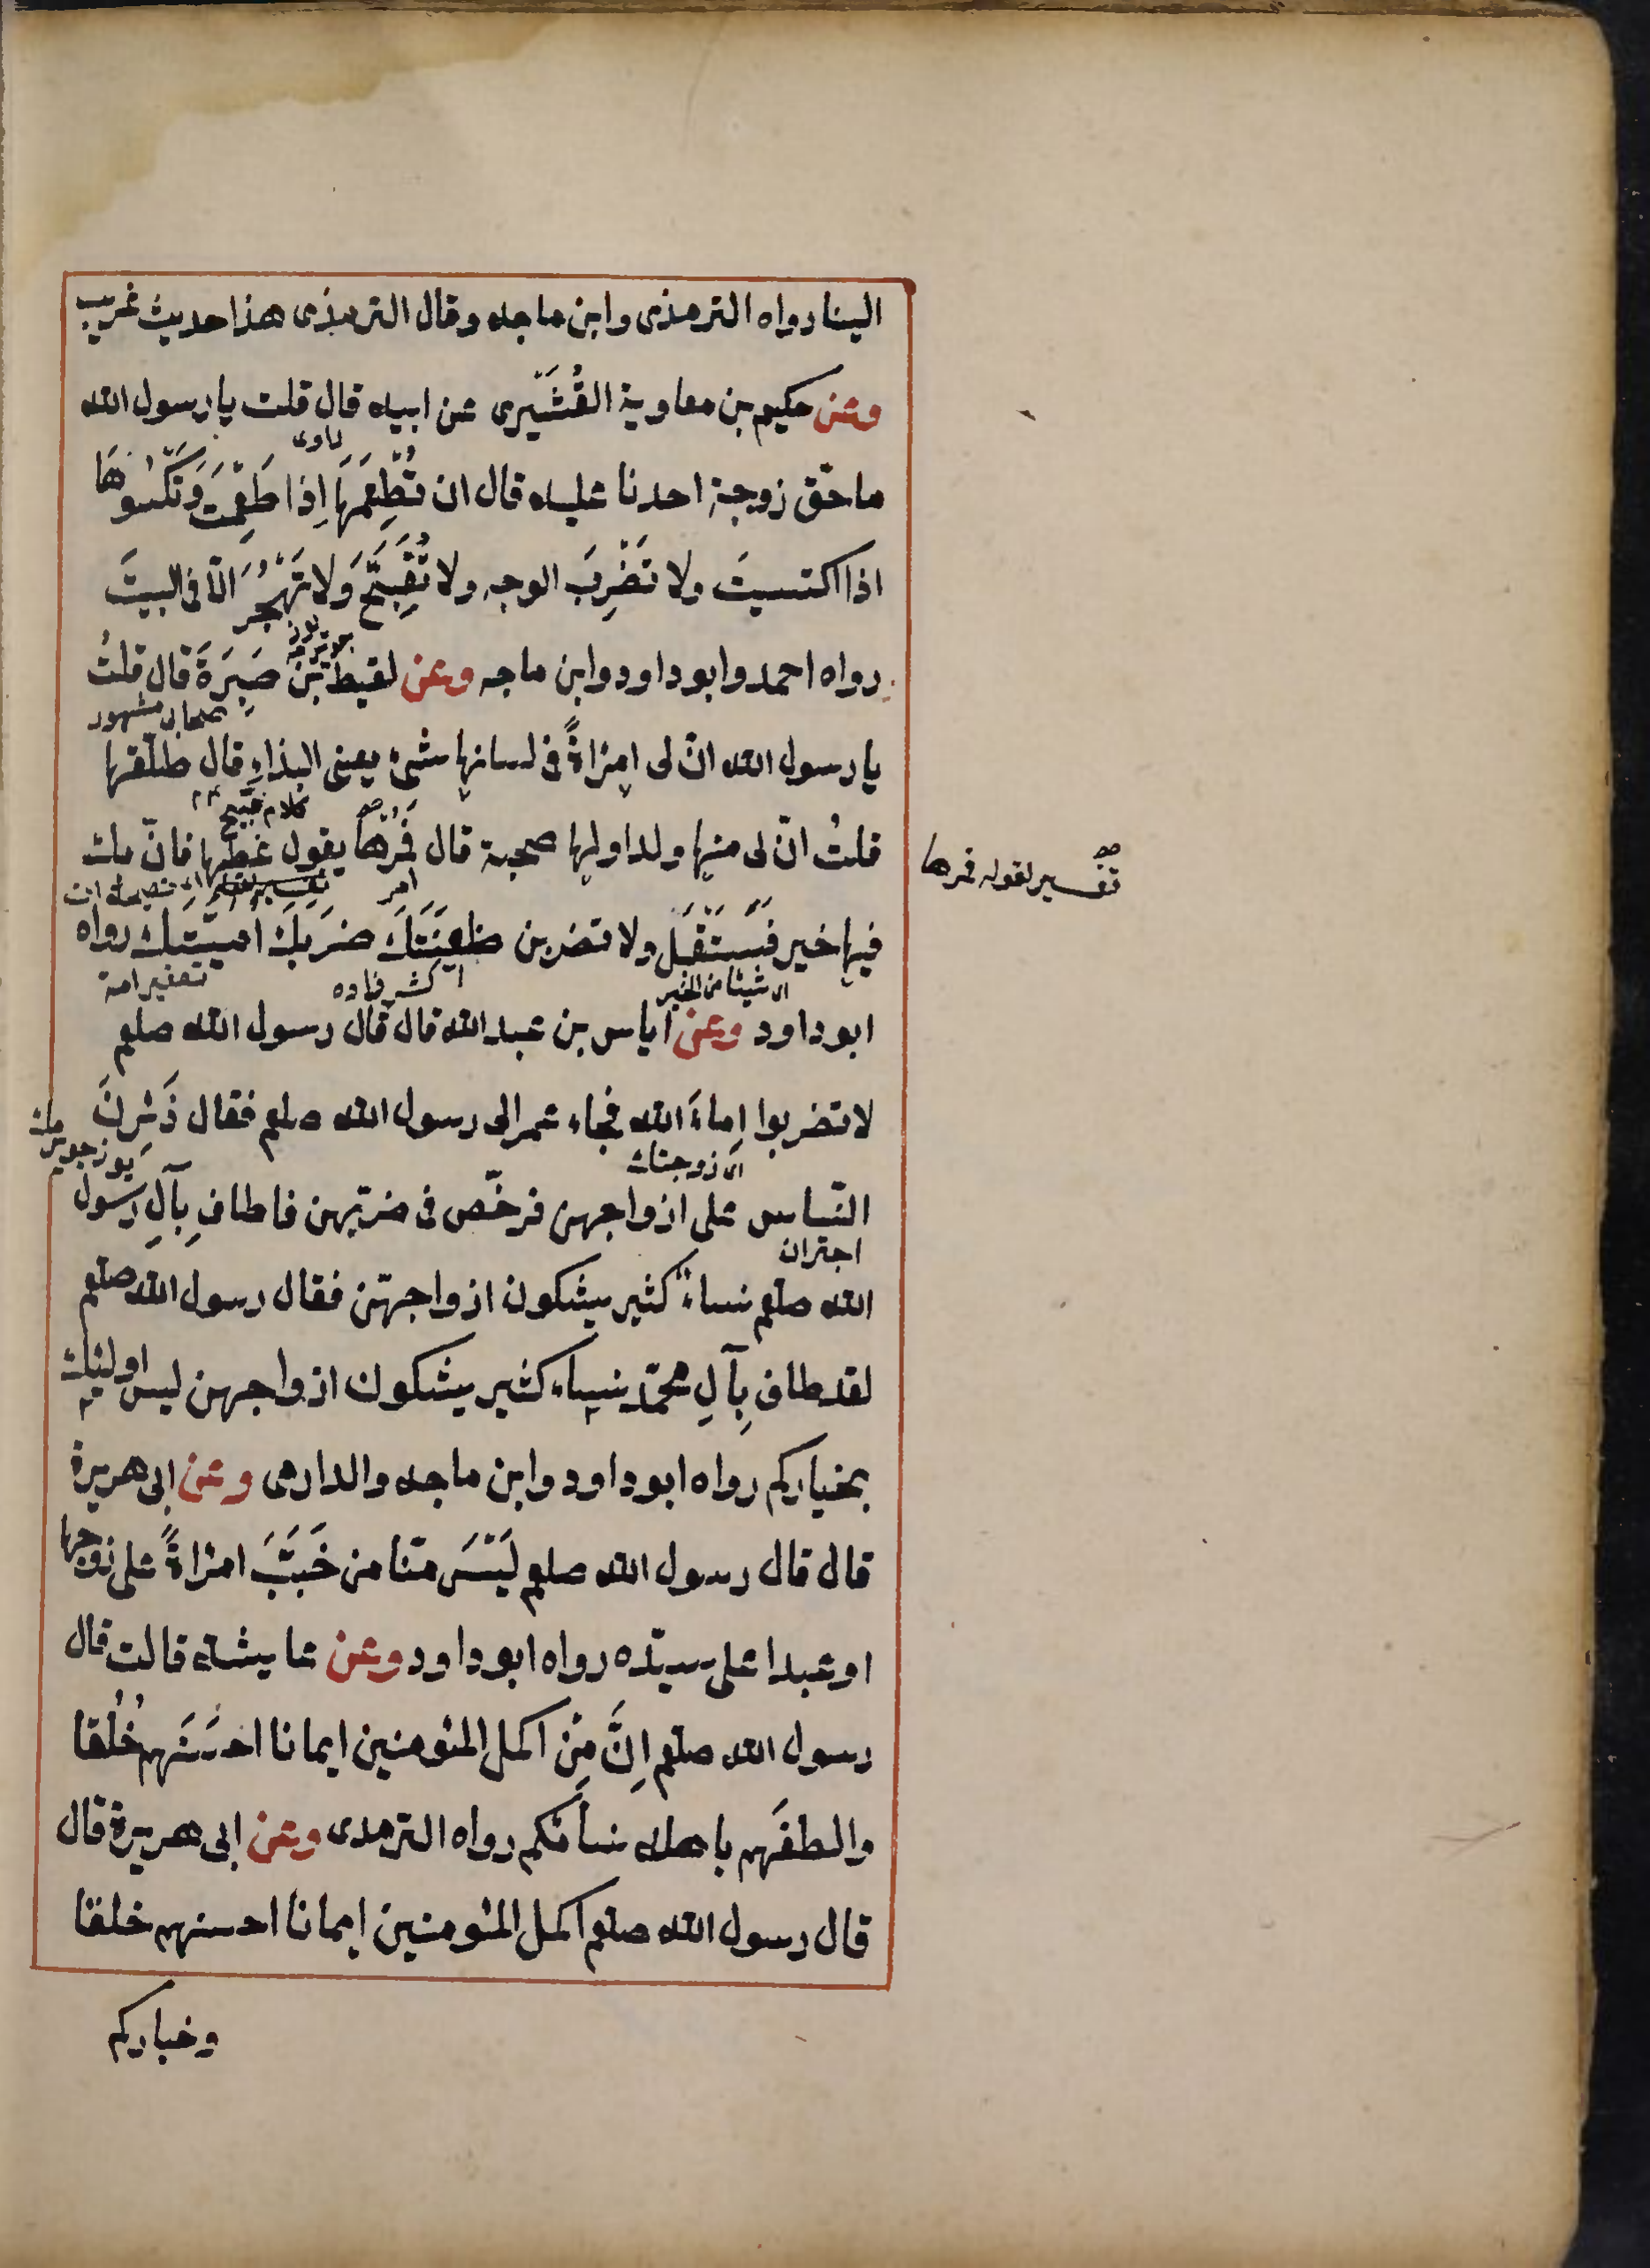 الينا رواه الترمذى وابن ماجه وقال الترمذى هذا حديث غريب
وعن حكيم بن معاوية القُشَيرى عن ابيه قال قلت يا رسول الله
ما حق زوجة احدنا عليه قال ان تُطعِمَهَا اِذا طَعِمْتَ وَتَكْسُوهَا
اذا اكتسيتَ ولا تَضْرِبَ الوجه ولا تُقَبِّحَ وَلا تَهْجُرَ الّا فى البيتَ
رواه احمد وابو داود وابن ماجه وعن لقيط بن صَبِرَةَ قال قلتُ
صحابى مشهور
يا رسول الله انّ لى اِمْرَاةً فى لسانها شىء يعنى البذاءِ قال طلّقها
كلام قبيح
قلتُ انّ لى منها ولدا ولها صحبة قال فَمُرْهَا يقول عَظْهَا فان يك
تفسير لقوله فمرها
امر
فيها خير فَسَتَقْبَلُ ولا تضربن ظَعِينَتَكَ ضَرْبَكَ اميّتَكَ رواه
اى شيئا من الخير
تصغير امة
ابو داود وعن اياس بن عبد الله قال قال رسول الله صلعم
لا تضربوا اِماءَ الله فجاء عمر الى رسول الله صلعم فقال ذَئِرْنَ
اى زوجتك
النّساس على ازواجهن فرخّص فى ضربهن فاطاف بِآلِ رسول
الله صلعم نساءٌ كثير يشكون ازواجهنّ فقال رسول الله صلعم
لقد طاف بِآلِ محمّد نساء كثير يشكون ازواجهن ليس اولئك
بخياركم رواه ابو داود وابن ماجه والدارمى وعن ابى هريرة
قال قال رسول الله صلعم لَيْسَ منّا من خَبَّبَ امْرَاةً على زوجها
او عبدا على سيّده رواه ابو داود وعن عايشة قالت قال
رسول الله صلعم اِنَّ مِنْ اكمل المئومنين ايمانا احْسَنَهم خُلُقا
والطفَهم باهله نسائكم رواه الترمدى وعن ابى هريرة قال
قال رسول الله صلعم اكمل المئومنين ايمانا احسنهم خلقا
وخياركم